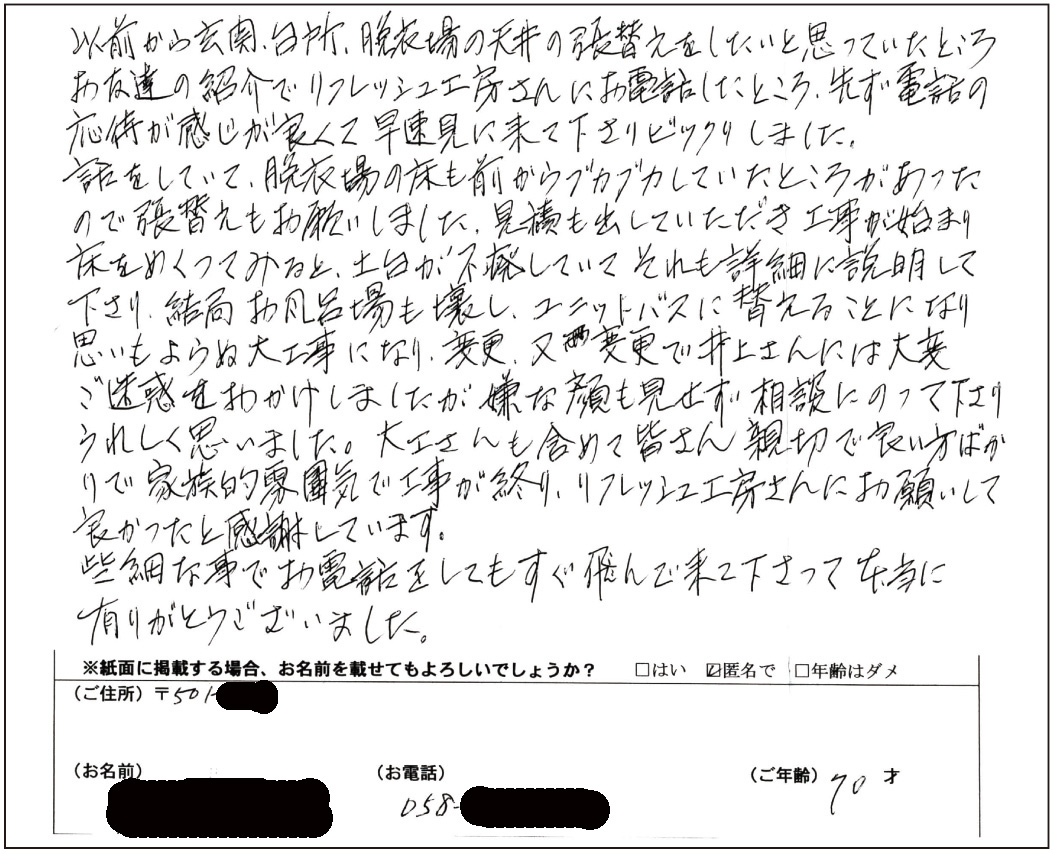 以前から玄関、台所、脱衣場の天井の張替えをしたいと思っていたところ
お友達の紹介でリフレッシュ工房さんにお電話したところ、先ず電話の
応待が感じが良くて早速見に来て下さりビックリしました。
話をしていて、脱衣場の床も前からブカブカしていたところがあった
ので張替えもお願いしました。見積も出していただき工事が始まり
床をめくってみると、土台が不癈していてそれも詳細に説明して
下さり、結局お風呂場も壊し、ユニットバスに替えることになり
思いもよらぬ大工事になり、変更、又変更で井上さんには大変
ご迷惑をおかけしましたが嫌な顔も見せず相談にのって下さり
うれしく思いました。大工さんも含めて皆さん親切で良い方ばか
りで家族的雰囲気で工事が終り、リフレッシュ工房さんにお願いして
良かったと感謝しています。
些細な事でお電話をしてもすぐ飛んで来て下さって本当に
有りがとうございました。
※紙面に掲載する場合、お名前を載せてもよろしいでしょうか? □はい ☑匿名で □年齢はダメ
(ご住所)〒501-
(お名前) (お電話) 058- (ご年齢) 70 才